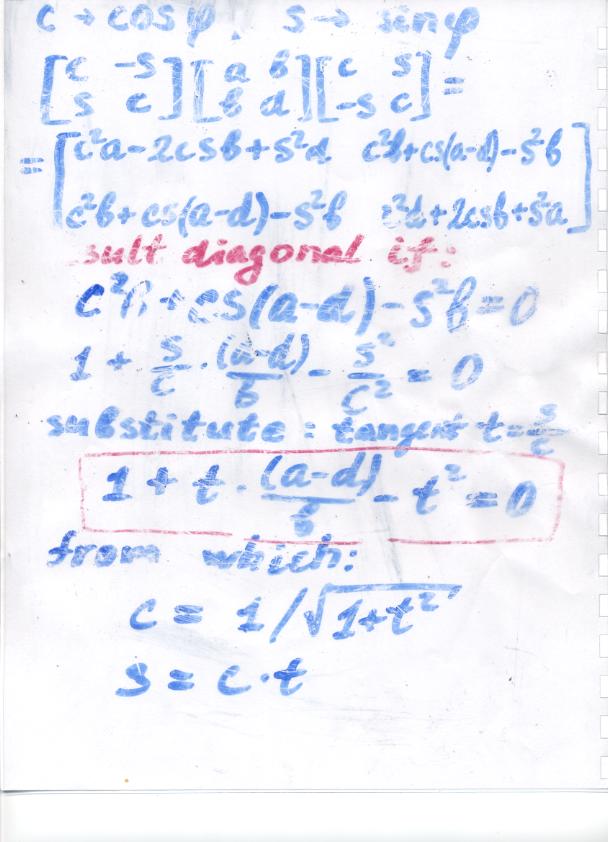 c → cos φ, s → sin φ
[c -s; s c] [a b; b d] [c s; -s c] =
= [c²a-2csb+s²d c²b+cs(a-d)-s²b
c²b+cs(a-d)-s²b c²d+2csb+s²a]
sult diagonal if:
c²b+cs(a-d)-s²b=0
1 + s/c · (a-d)/b - s²/c² = 0
substitute: tangent t = s/c
1 + t · (a-d)/b - t² = 0
from which:
c = 1/√(1+t²)
s = c·t